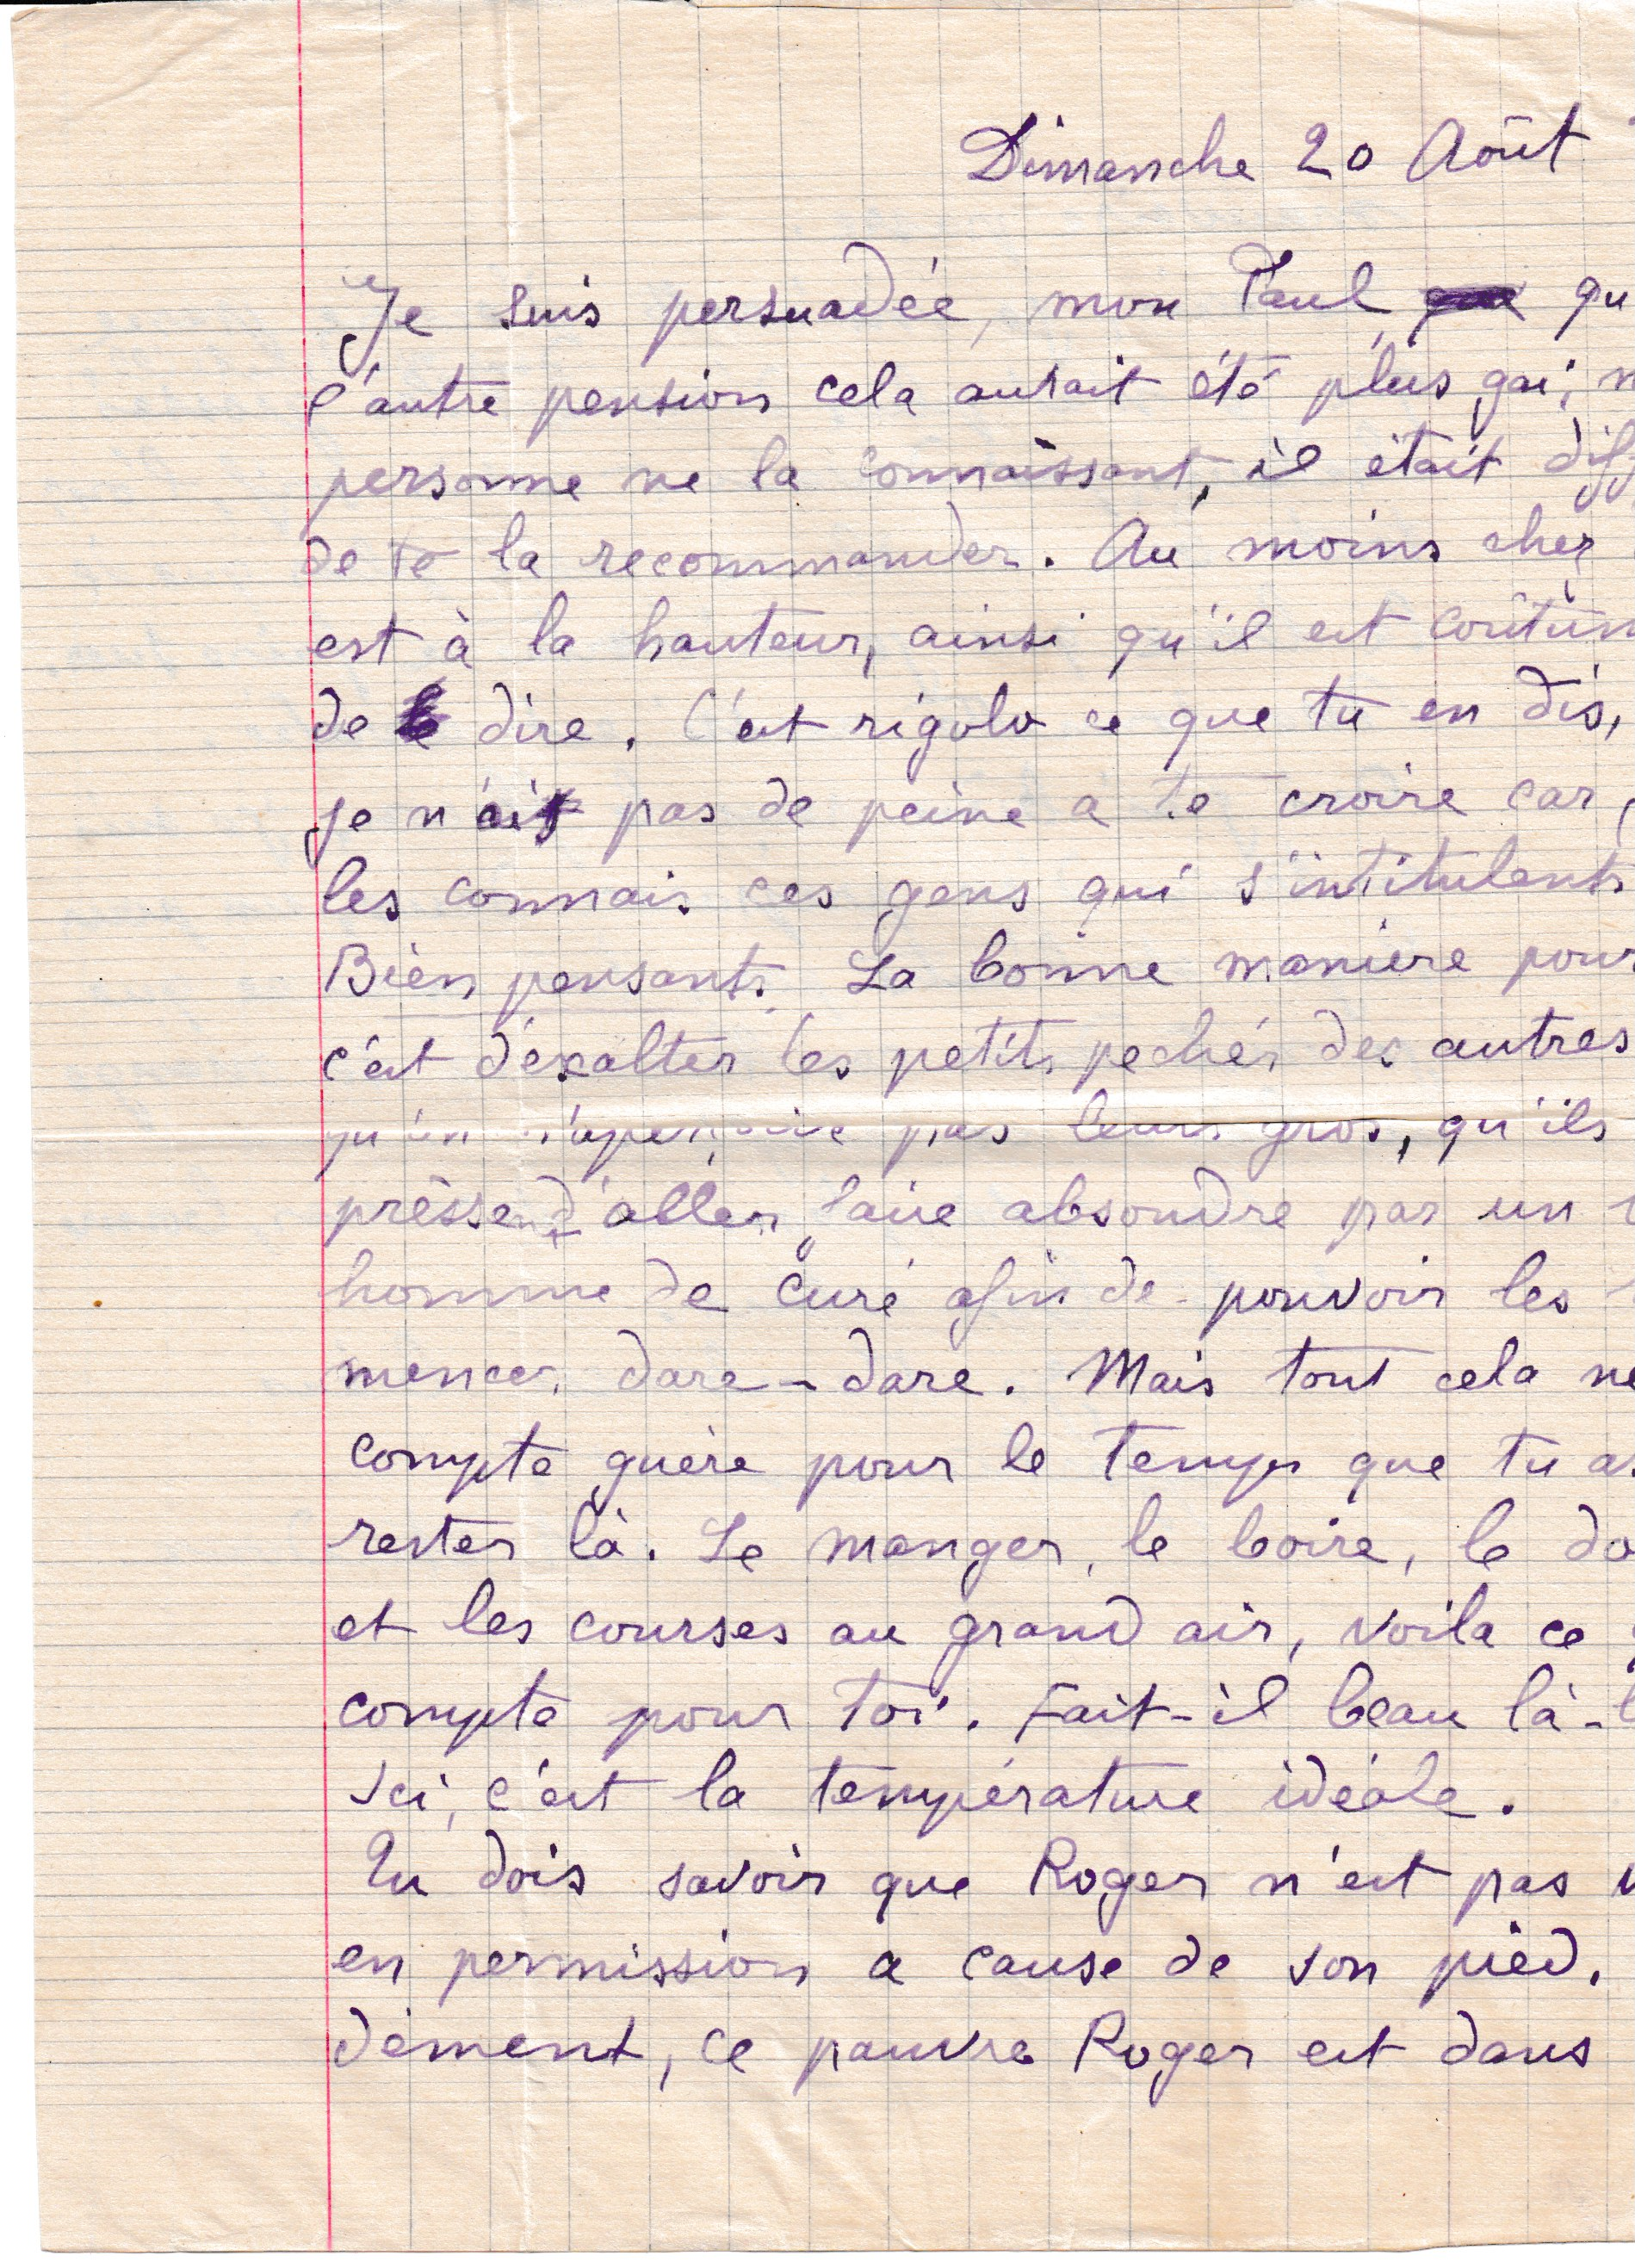 Dimanche 20 Août
Je suis persuadée, mon Paul, qu
l'autre pension cela aurait été plus gai; m
personne ne la connaissant, il était diff
de te la recommander. Au moins chez
est à la hauteur, ainsi qu'il est coûtum
de dire. C'est rigolo ce que tu en dis,
je n'ai pas de peine a te croire car,
les connais ces gens qui s'intitulents
Bien pensants. La bonne manière pour
c'est d'exalter les petits pechés des autres
qu'on n'aperçoive pas leurs gros, qu'ils
pressent d'aller faire absoudre par un
homme de curé afin de pouvoir les
mencer dare-dare. Mais tout cela ne
compte guère pour le temps que tu as
rester là. Le manger, le boire, le do
et les courses au grand air, voila ce
compte pour toi. Fait-il beau là-b
Ici, c'est la température idéale.
Tu dois savoir que Roger n'est pas v
en permission a cause de son pied.
dément, ce pauvre Roger est dans